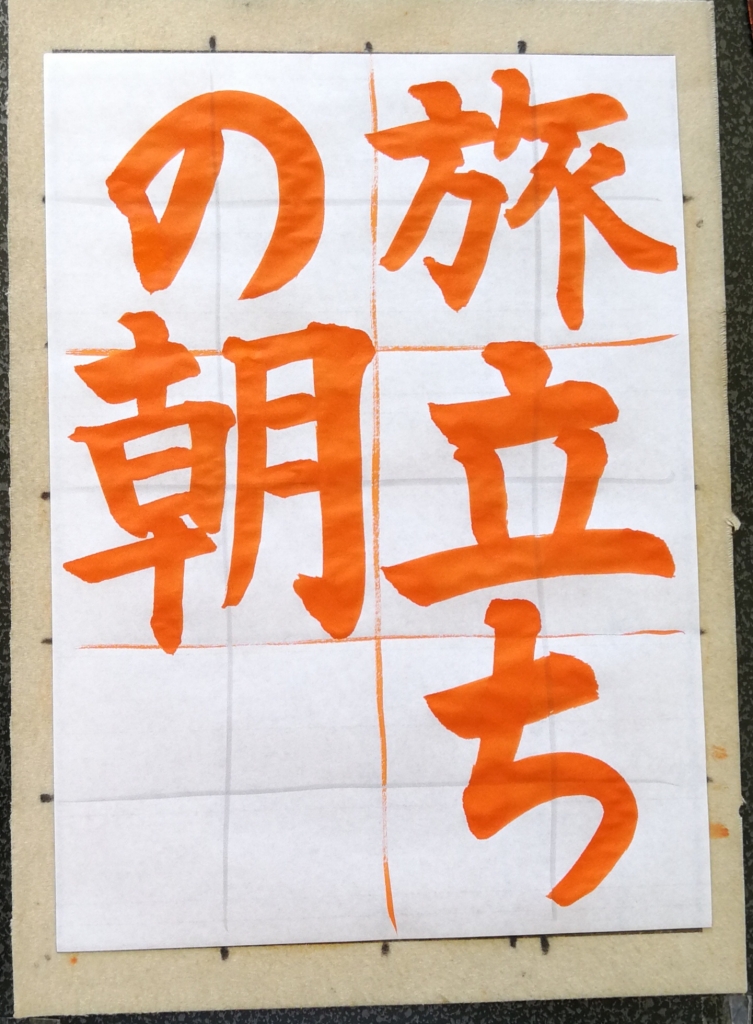 旅立ち
の朝